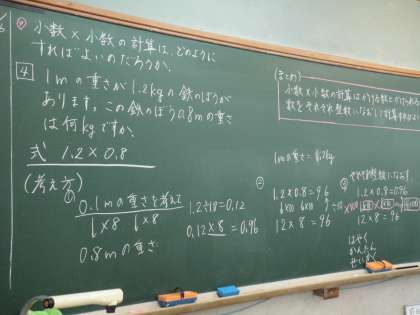 小数×小数の計算は、どのように
すればよいのだろうか。
4
1mの重さが1.2kgの鉄のぼうが
あります。この鉄のぼう0.8mの重さ
は何kgですか。
式 1.2×0.8
(考え方)
0.1mの重さを考えて
↓×8 ↓×8
0.8mの重さ
1.2÷10=0.12
0.12×8=0.96
1mの重さ
1.2×0.8=0.96
↓×10 ↓×10
12×8=96
(まとめ)
小数×小数の計算は
数をそれぞれ整数になおして計算すればよい
整数になおす
1.2×0.8=0.96
12×8=96
はやく
かんたん
せいかく